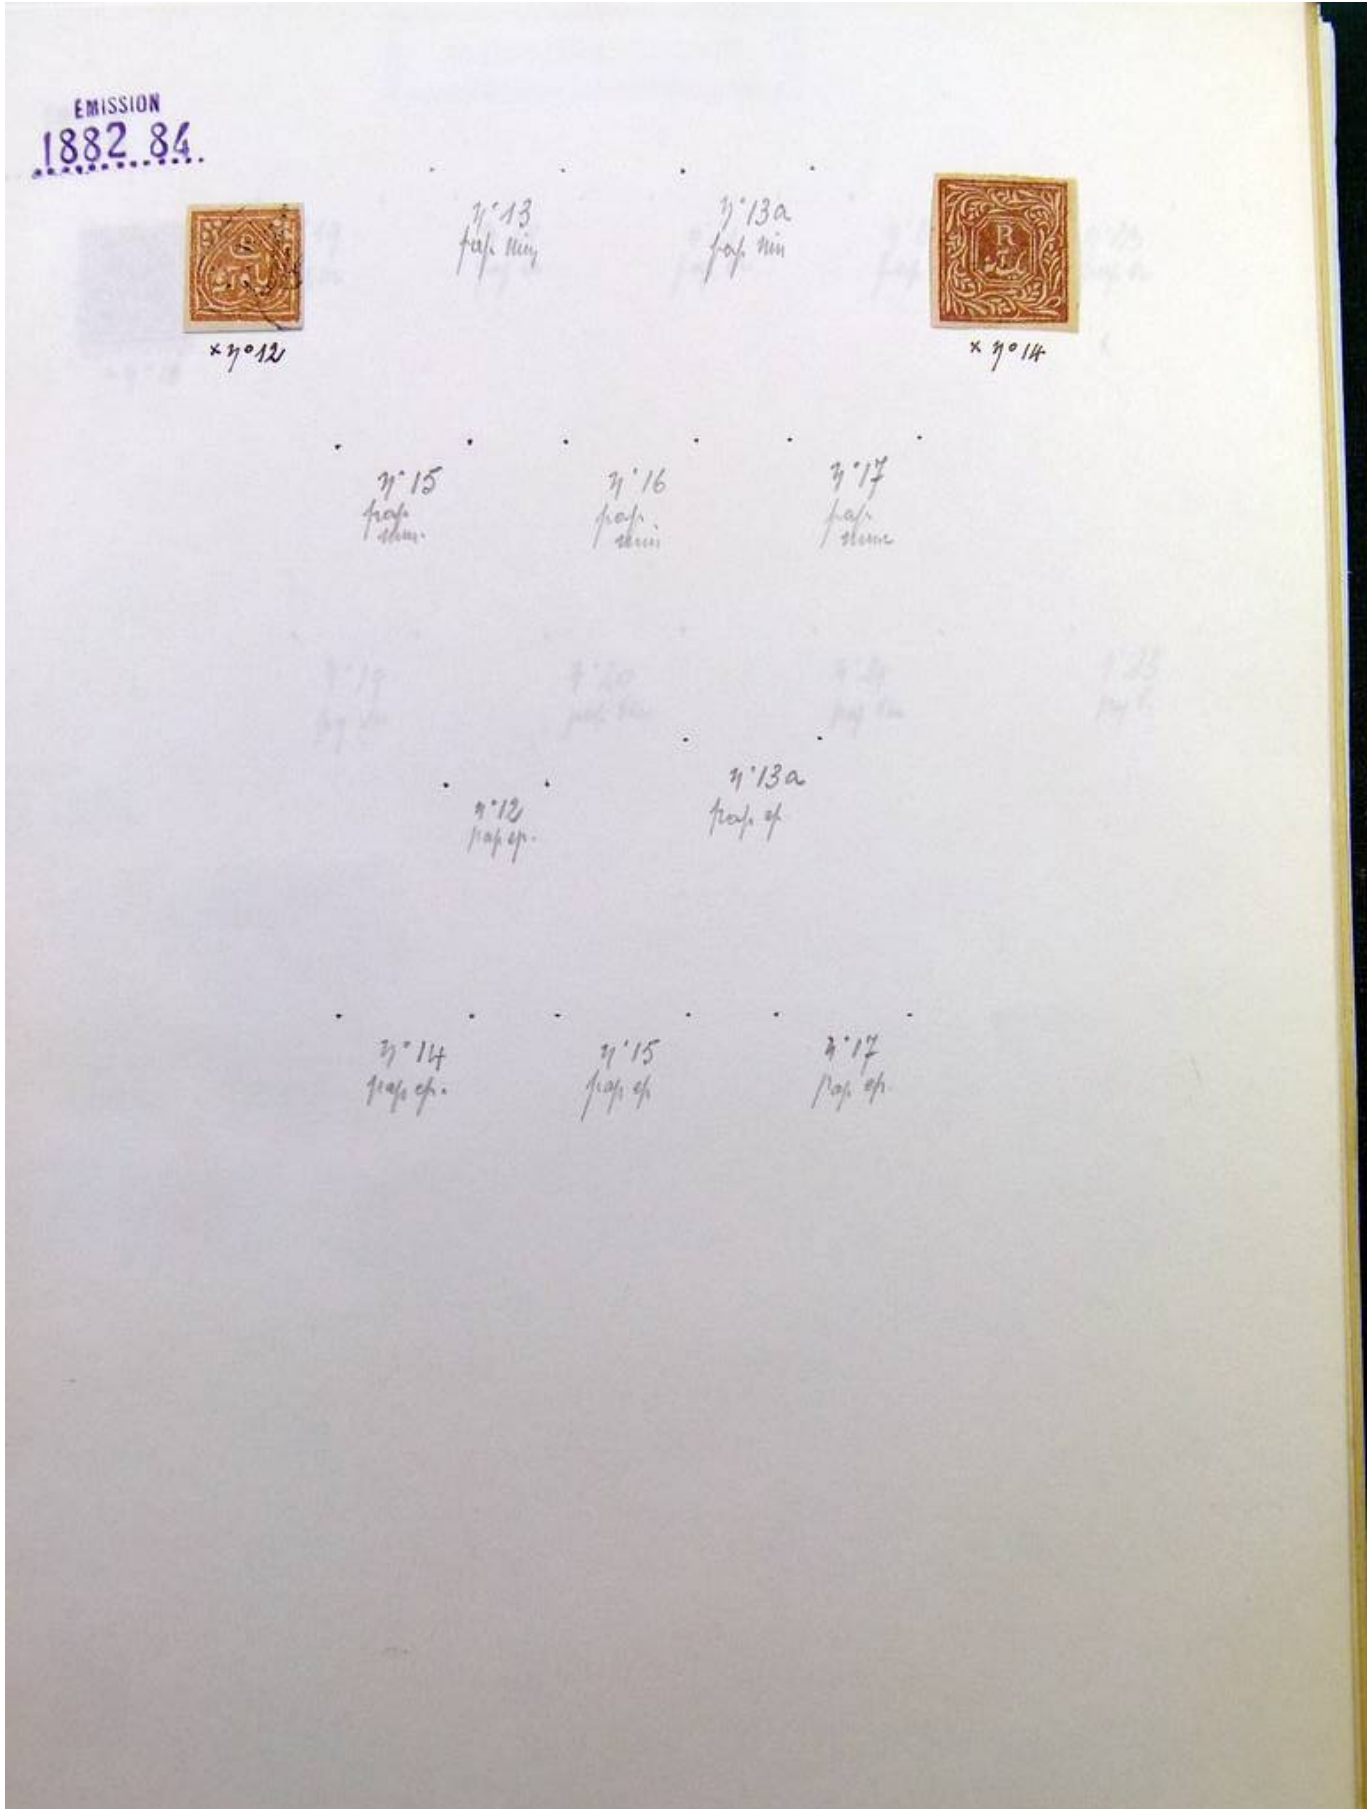 EMISSION
1882 84
n° 13
pap. min
n° 13a
pap. min
R
x n° 12
x n° 14
n° 15
pap.
min.
n° 16
pap.
min
n° 17
pap.
mince
n° 19
n° 20
n° 12
pap ep.
n° 13a
pap. ep
n° 14
pap ep.
n° 15
pap ep
n° 17
pap. ep.